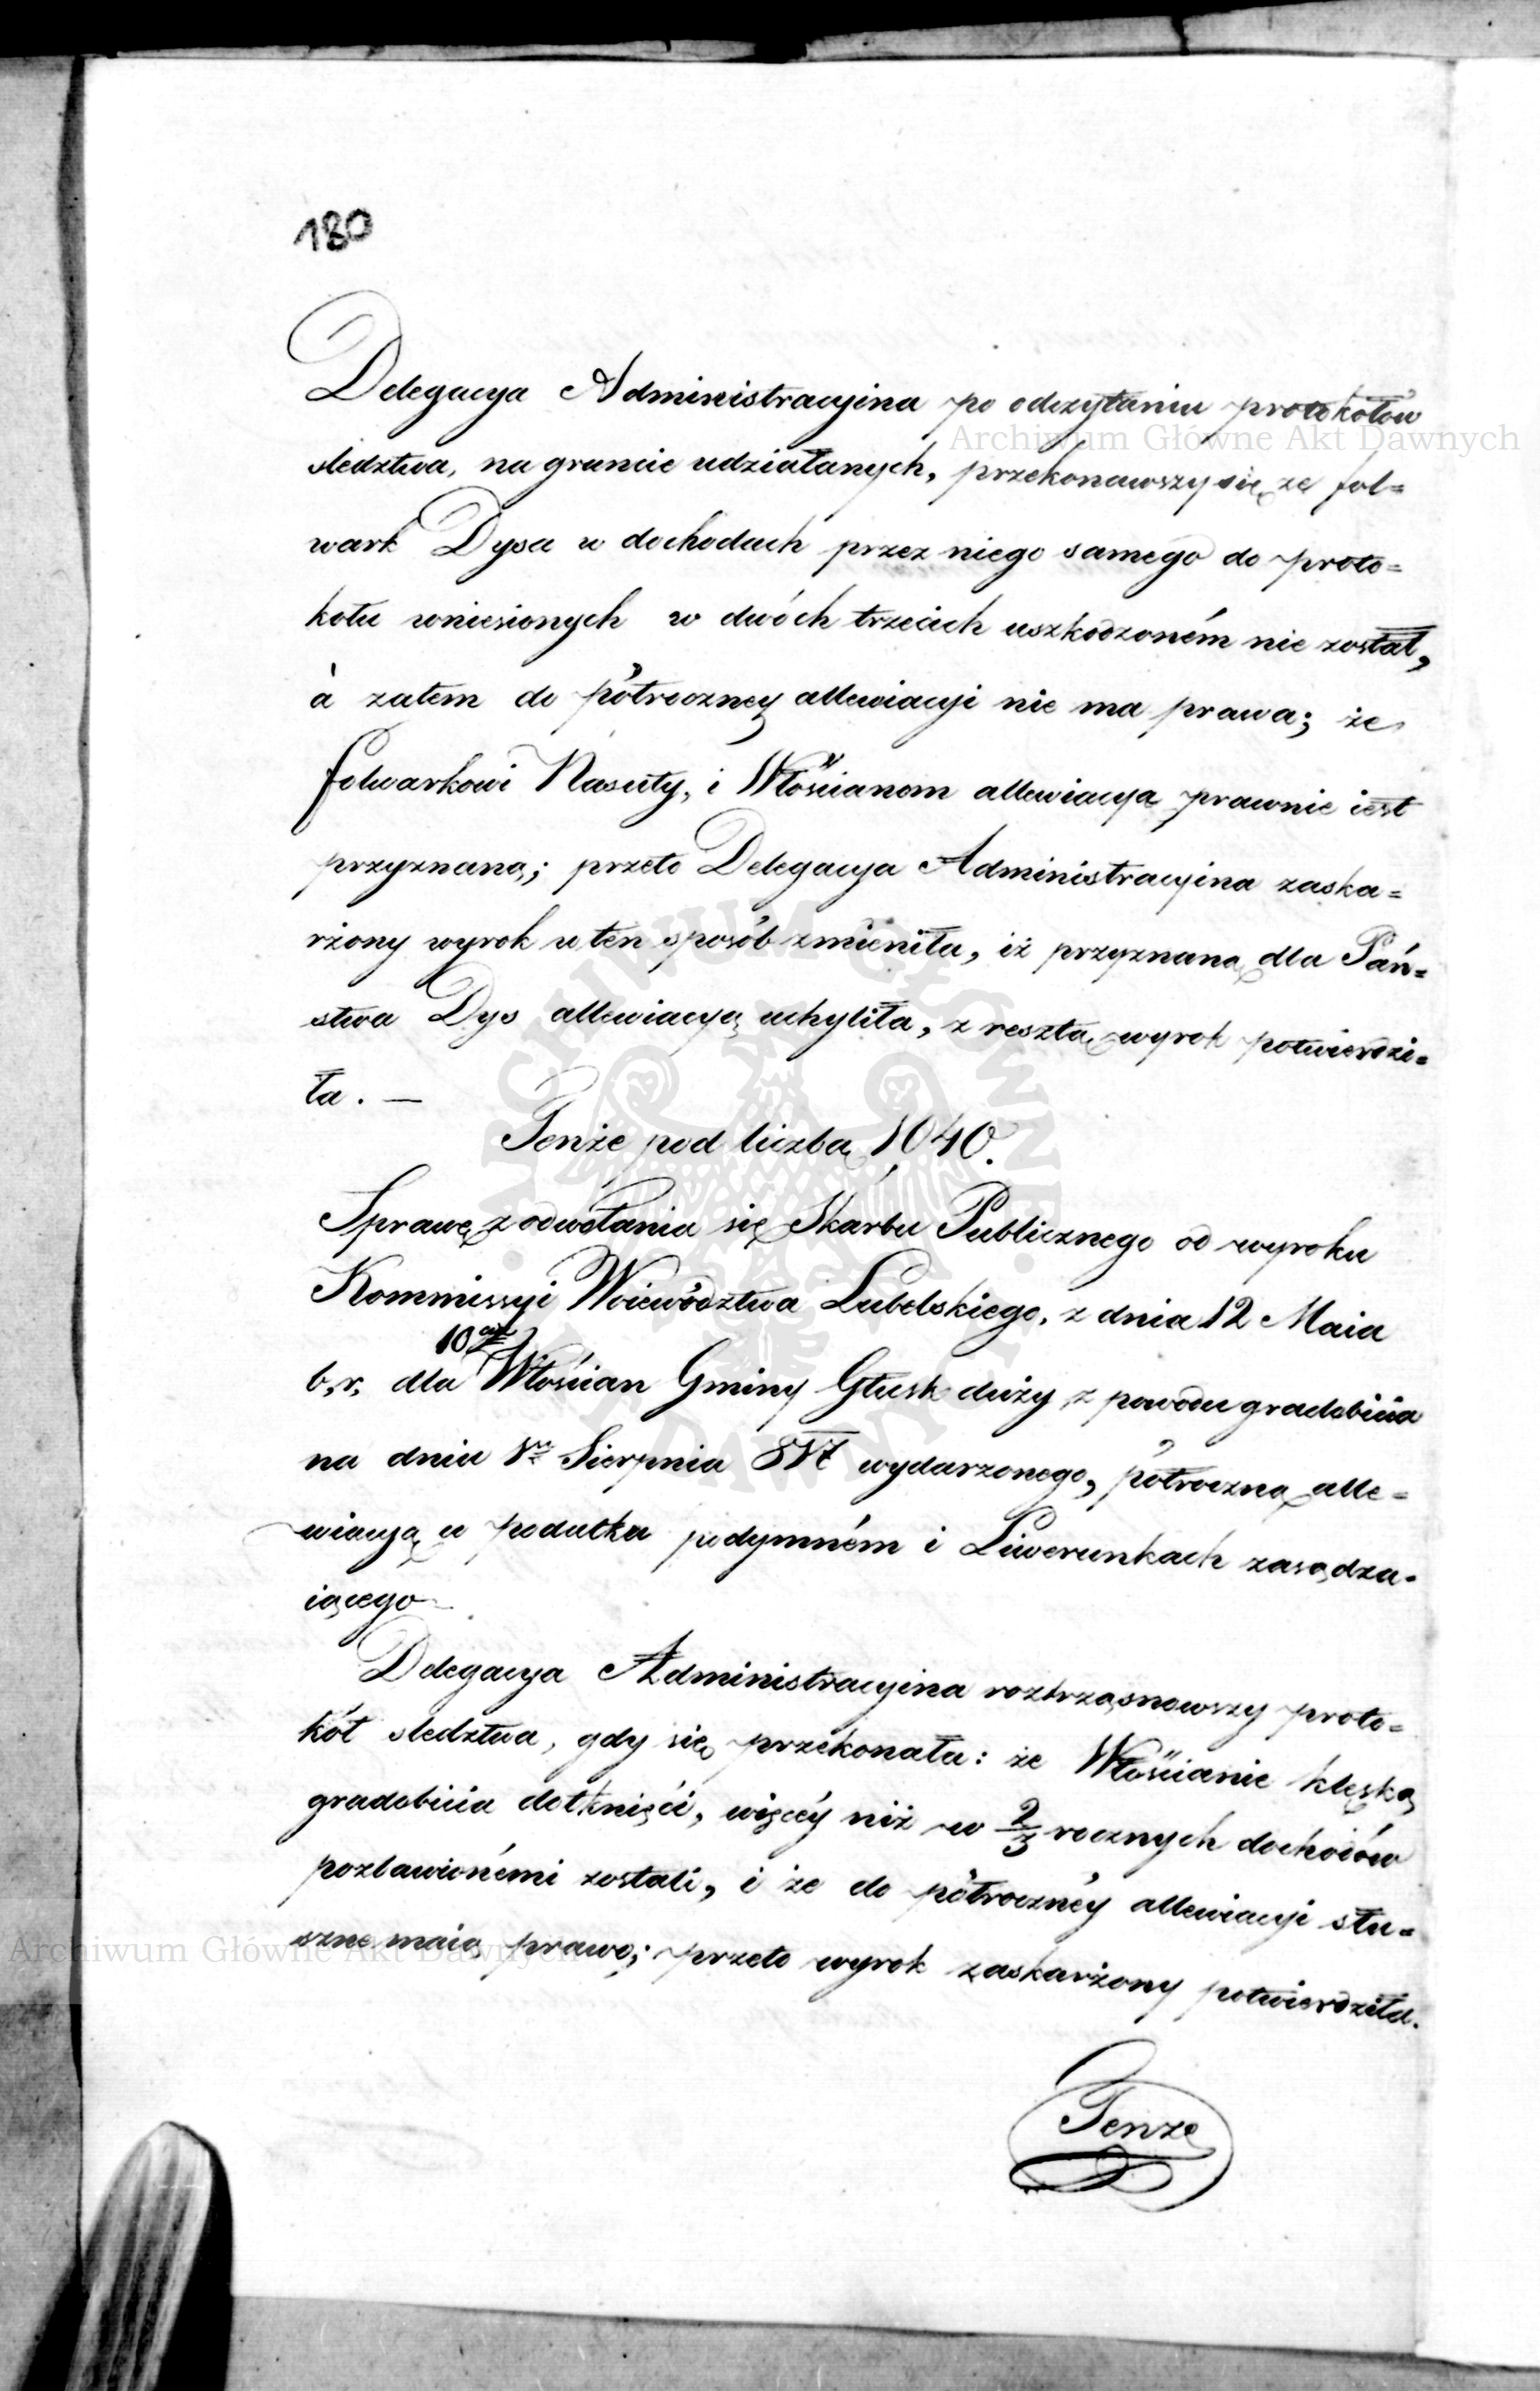 180
Delegacya Administracyina po odczytaniu protokółów
sledztwa, na gruncie udziałanych, przekonawszy się ze fol=
wark Dysa w dochodach przez niego samego do proto=
kołu wniesionych w dwóch trzecich uszkodzoném nie został,
à zatem do półroczney allewiacyi nie ma prawa; że
folwarkowi Nasuty, i Włościanom allewiacya prawnie iest
przyznaną; przeto Delegacya Administracyina zaska=
rżony wyrok w ten sposób zmieniła, iż przyznaną dla Pań=
stwa Dys allewiacyą uchyliła, z resztą wyrok potwierdzi=
ła. —
Tenże pod liczbą 1040.
Sprawę z odwołania się Skarbu Publicznego od wyroku
Kommissyi Woiewództwa Lubelskiego, z dnia 12 Maia
b, r, dla 10ciu Włościan Gminy Głusk duży, z powodu gradobicia
na dniu 8m Sierpnia 817 wydarzonego, półroczną alle=
wiacyą w podatku podymném i Liwerunkach zasądza=
iącego
Delegacya Administracyina roztrząsnowszy proto=
kół sledztwa, gdy się przekonała: że Włościanie klęską
gradobicia dotknięci, więcéy niż w 2/3 rocznych dochodów
pozbawionémi zostali, i że do półrocznéy allewiacyi słu=
szne maią prawo; przeto wyrok zaskarżony potwierdziła.
Tenże
Archiwum Główne Akt Dawnych
Archiwum Główne Akt Dawnych
ARCHIWUM GŁÓWNE AKT DAWNYCH